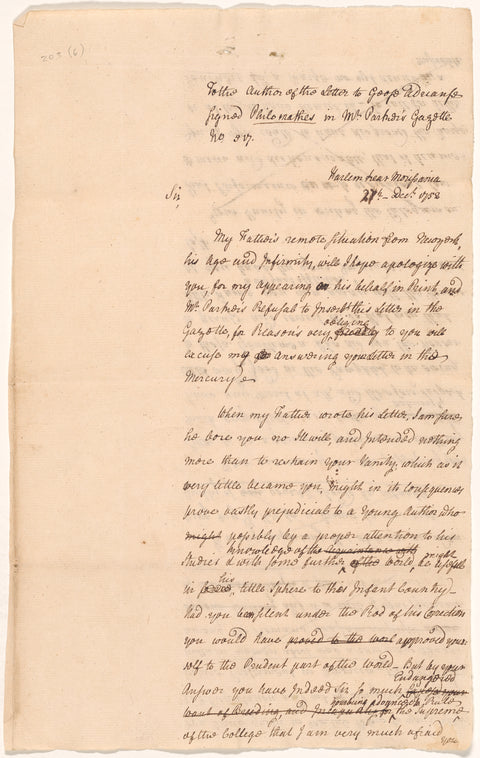 203 (6)
To the Author of the Letter to George Adrianse
Signed Philomathes in Mr. Parker's Gazette
No 517.
Harlem near Mousania
27th Decr. 1753
Sir,
My Father's remote situation from Newyork,
his Age and Infirmity, will I hope apologize with
you, for my appearing on his behalf in Print, and
Mr. Parker's Refusal to Insert this Letter in the
obliging
Gazette, for Reason's very to you will
excuse my answering your Letter in the
Mercury
When my Father wrote his Letter, I am sure
he bore you no Ill will, and Intended nothing
more than to restrain your Vanity, which as it
very little became you, might in its consequences
prove vastly prejudicial to a Young Author who
might possibly by a proper attention to his
knowledge of the
Studies & with some further of the world, be usefull
might
his
in little Sphere to this Infant Country
Had you been silent under the Rod of his Correction
you would have proved to the world approved your
self to the Prudent part of the world – But by your
Endangered
Answer you have Indeed Sir so much
want of Breeding, and the Supreme Rule
of the College that I am very much afraid
you